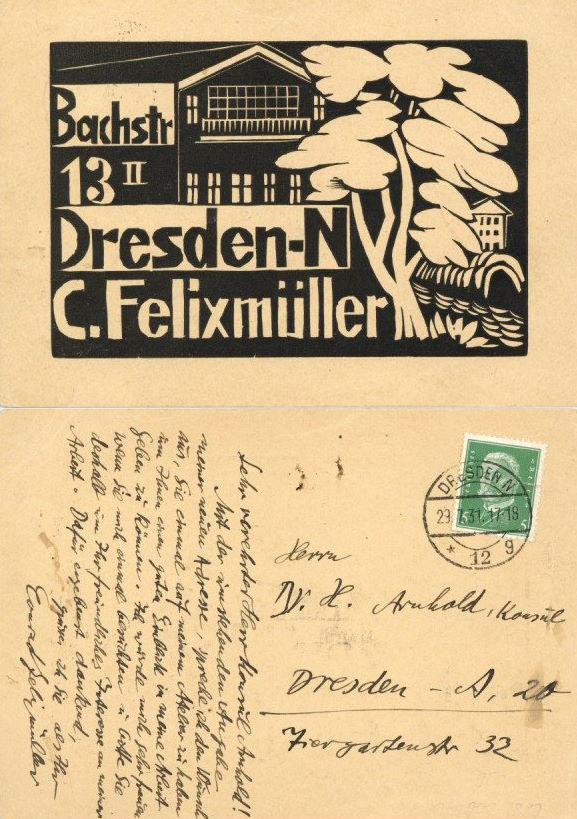 Bachstr
13 II
Dresden-N
C. Felixmüller
DRESDEN N
29.7.31.17-18
12 g
5
Herrn
Dr. H. Arnhold, Konsul
Dresden - A, 20
Tiergartenstr 32
Sehr verehrter Herr Konsul Arnhold!
Mit der umstehenden Angabe
meiner neuen Adresse, spreche ich den Wunsch
aus, Sie einmal auf meinem Atelier zu haben
um Ihnen einen guten Einblick in meine Arbeit
geben zu können. Ich würde mich sehr freuen
wenn Sie mich einmal besuchten u. bitte Sie
deshalb um Ihr freundliches Interesse an meiner
Arbeit. Dafür ergebenst dankend,
grüsse ich Sie als Ihr
Conrad Felixmüller